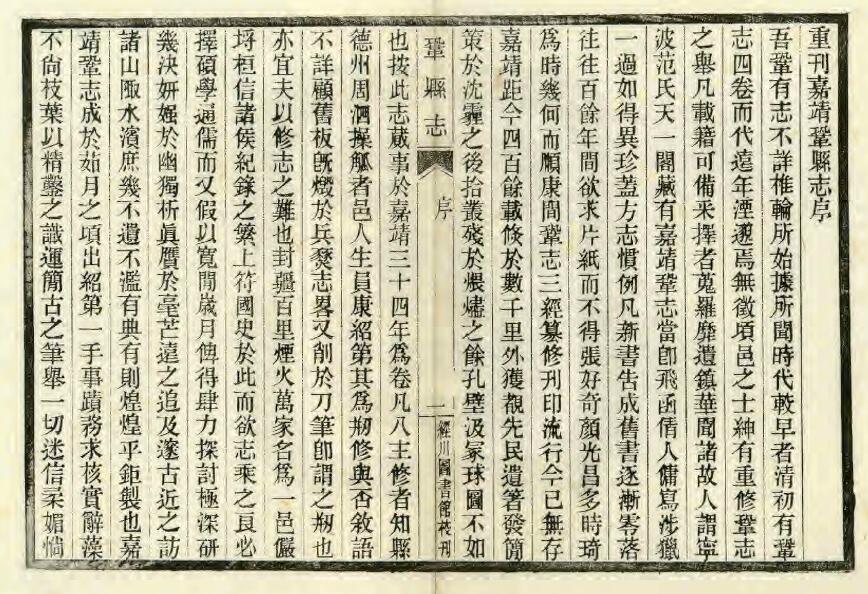 重刊嘉靖鞏縣志序
吾鞏有志不詳椎輪所始據所聞時代較早者清初有鞏
志四卷而代遠年湮邈焉無徵頃邑之士紳有重修鞏志
之舉凡載籍可備采擇者蒐羅靡遺鎮華聞諸故人謂寧
波范氏天一閣藏有嘉靖鞏志當卽飛函倩人傭寫涉獵
一過如得異珍葢方志慣例凡新書告成舊書逐漸零落
往往百餘年間欲求片紙而不得張好奇顏光昌多時琦
爲時幾何而順康間鞏志三經纂修刊印流行今已無存
嘉靖距今四百餘載倐於數千里外獲覩先民遺箸發簡
策於沈霾之後拾叢殘於煨燼之餘孔壁汲冢球圖不如
鞏縣志
序
一
經川圖書館校刊
也按此志蕆事於嘉靖三十四年爲卷凡八主修者知縣
德州周泗操觚者邑人生員康紹第其爲剏修與否敘語
不詳顧舊板旣燬於兵燹志畧又削於刀筆卽謂之剏也
亦宜夫以修志之難也封疆百里煙火萬家名爲一邑儼
埒桓信諸侯紀錄之繁上符國史於此而欲志乘之良必
擇碩學通儒而又假以寬閒歲月俾得肆力探討極深研
幾決妍媸於幽獨析眞贋於毫芒遠之追及邃古近之訪
諸山陬水濱庶幾不遺不濫有典有則煌煌乎鉅製也嘉
靖鞏志成於茹月之項出紹第一手事蹟務求核實辭藻
不尙枝葉以精鑿之識運簡古之筆舉一切迷信柔媚惝